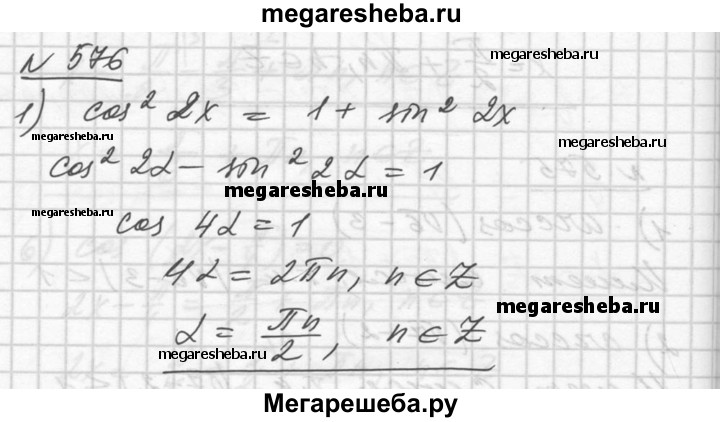 megaresheba.ru
N 576
1) cos² 2x = 1 + sin² 2x
megaresheba.ru
megaresheba.ru
megaresheba.ru
cos² 2α - sin² 2α = 1
megaresheba.ru
megaresheba.ru
cos 4α = 1
4α = 2Пn, n ∈ Z
megaresheba.ru
α = Пn/2, n ∈ Z
megaresheba.ru
Мегарешеба.ру